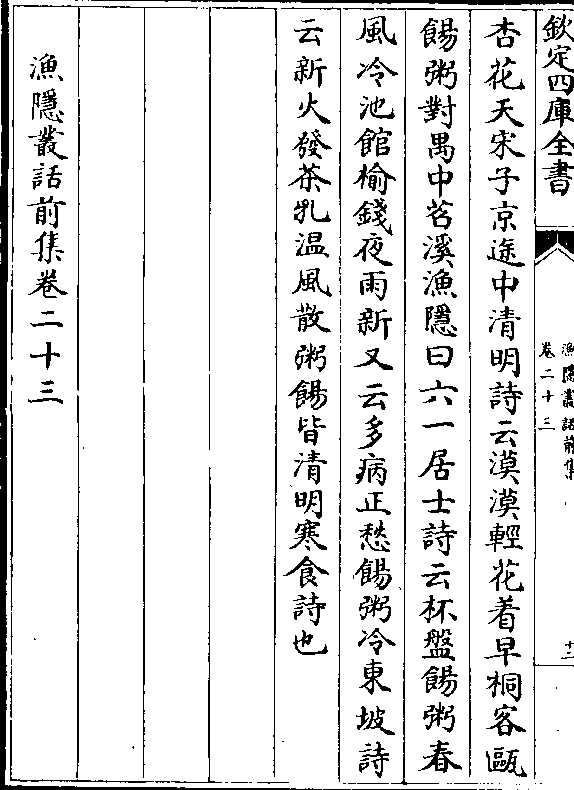 欽定四庫全書
漁隱叢話前集
卷二十三
十二
杏花天宋子京途中清明詩云漠漠輕花着早桐客甌
餳粥對禺中苕溪漁隱曰六一居士詩云杯盤餳粥春
風冷池館榆錢夜雨新又云多病正愁餳粥冷東坡詩
云新火發茶乳温風散粥餳皆清明寒食詩也
漁隱叢話前集卷二十三